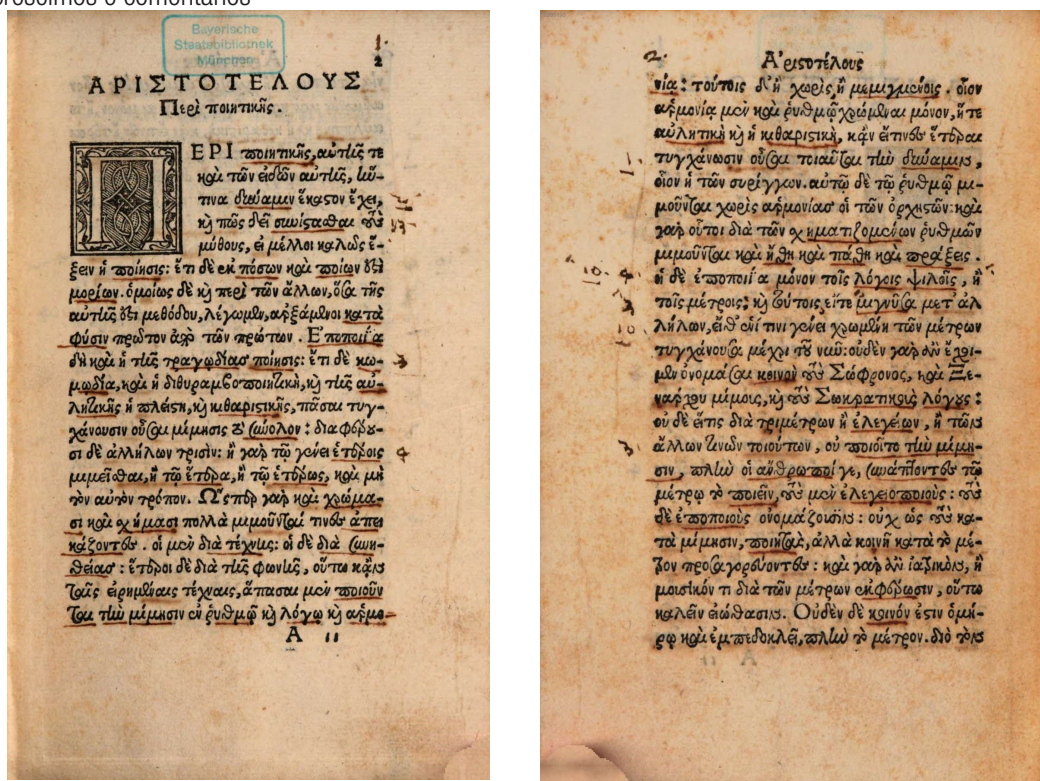 Bayerische
Staatsbibliothek
München
1.
2
ΑΡΙΣΤΟΤΕΛΟΥΣ
Περὶ ποιητικῆς.
ΠΕΡΙ ποιητικῆς, αὐτῆς τε
καὶ τῶν εἰδῶν αὐτῆς, ἥν-
τινα δύναμιν ἕκαστον ἔχει,
κὶ πῶς δεῖ συνίστασθαι τοὺς
μύθους, εἰ μέλλοι καλῶς ἕ-
ξειν ἡ ποίησις: ἔτι δὲ ἐκ πόσων καὶ ποίων ἐστὶ
μορίων. ὁμοίως δὲ κὶ περὶ τῶν ἄλλων, ὅσα τῆς
αὐτῆς ἐστι μεθόδου, λέγωμεν, ἀρξάμενοι κατὰ
φύσιν πρῶτον ἀπὸ τῶν πρώτων. Ἐποποιΐα
δὴ καὶ ἡ τῆς τραγωδίας ποίησις: ἔτι δὲ κω-
μωδία, καὶ ἡ διθυραμβοποιητικὴ, κὶ τῆς αὐ-
λητικῆς ἡ πλείστη, κὶ κιθαριστικῆς, πᾶσαι τυγ-
χάνουσιν οὖσαι μίμησις τὸ σύνολον: διαφέρου-
σι δὲ ἀλλήλων τρισὶν: ἢ γὰρ τῷ γένει ἑτέροις
μιμεῖσθαι, ἢ τῷ ἕτερα, ἢ τῷ ἑτέρως, καὶ μὴ
τὸν αὐτὸν τρόπον. Ὥσπερ γὰρ καὶ χρώμα-
σι καὶ σχήμασι πολλὰ μιμοῦνταί τινες ἀπει
κάζοντες. οἱ μὲν διὰ τέχνης: οἱ δὲ διὰ συνη-
θείας: ἕτεροι δὲ διὰ τῆς φωνῆς, οὕτω κἂν
ταῖς εἰρημέναις τέχναις, ἅπασαι μὲν ποιοῦν
ται τὴν μίμησιν ἐν ῥυθμῷ κὶ λόγω κὶ ἁρμο-
A ii
2.
Ἀριστοτέλους
νία: τούτοις δ' ἢ χωρὶς ἢ μεμιγμένοις. οἷον
ἁρμονία μὲν καὶ ῥυθμῷ χρώμεναι μόνον, ἥτε
αὐλητικὴ κὶ ἡ κιθαριστικὴ, κἂν εἴτινες ἕτεραι
τυγχάνωσιν οὖσαι τοιαῦται τὴν δύναμιν,
οἷον ἡ τῶν συρίγγων. αὐτῷ δὲ τῷ ῥυθμῷ μι-
μοῦνται χωρὶς ἁρμονίας οἱ τῶν ὀρχηστῶν: καὶ
γὰρ οὗτοι διὰ τῶν σχηματιζομένων ῥυθμῶν
μιμοῦνται καὶ ἤθη καὶ πάθη καὶ πράξεις.
ἡ δὲ ἐποποιΐα μόνον τοῖς λόγοις ψιλοῖς, ἢ
τοῖς μέτροις: κὶ τούτοις εἴτε μιγνῦσα μετ' ἀλ
λήλων, εἴθ' ἑνί τινι γένει χρωμένη τῶν μέτρων
τυγχάνουσα μέχρι τοῦ νῦν: οὐδὲν γὰρ ἂν ἔχοι-
μεν ὀνομάσαι κοινὸν τοὺς Σώφρονος, καὶ Ξε-
ναρχου μίμοις, κὶ τοὺς Σωκρατικοὺς λόγους:
οὐδὲ εἴτις διὰ τριμέτρων ἢ ἐλεγείων, ἢ τῶν
ἄλλων τινῶν τοιούτων, οὐ ποιοῖτο τὴν μίμη-
σιν, πλὴν οἱ ἄνθρωποί γε, συνάπτοντες τῷ
μέτρω τὸ ποιεῖν, τοὺς μὲν ἐλεγειοποιοὺς: τοὺς
δὲ ἐποποιοὺς ὀνομάζουσιν: οὐχ ὡς τοὺς κα-
τὰ μίμησιν, ποιητὰς, ἀλλὰ κοινῇ κατὰ τὸ μέ-
τρον προσαγορεύοντες: καὶ γὰρ ἂν ἰατρικὸν, ἢ
μουσικόν τι διὰ τῶν μέτρων ἐκφέρωσιν, οὕτω
καλεῖν εἰώθασιν. Οὐδὲν δὲ κοινόν ἐστιν ὁμή-
ρῳ καὶ ἐμπεδοκλεῖ, πλὴν τὸ μέτρον. διὸ τὸν